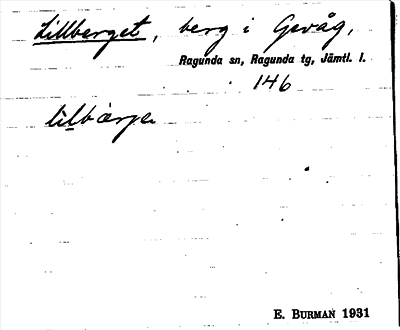 Lillberget, berg i Gevåg,
Ragunda sn, Ragunda tg, Jämtl. l.
146
E. BURMAN 1931